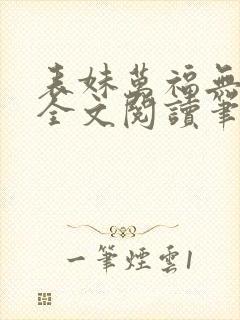 表妹萬福無
全文閱讀筆
一筆煙雲1